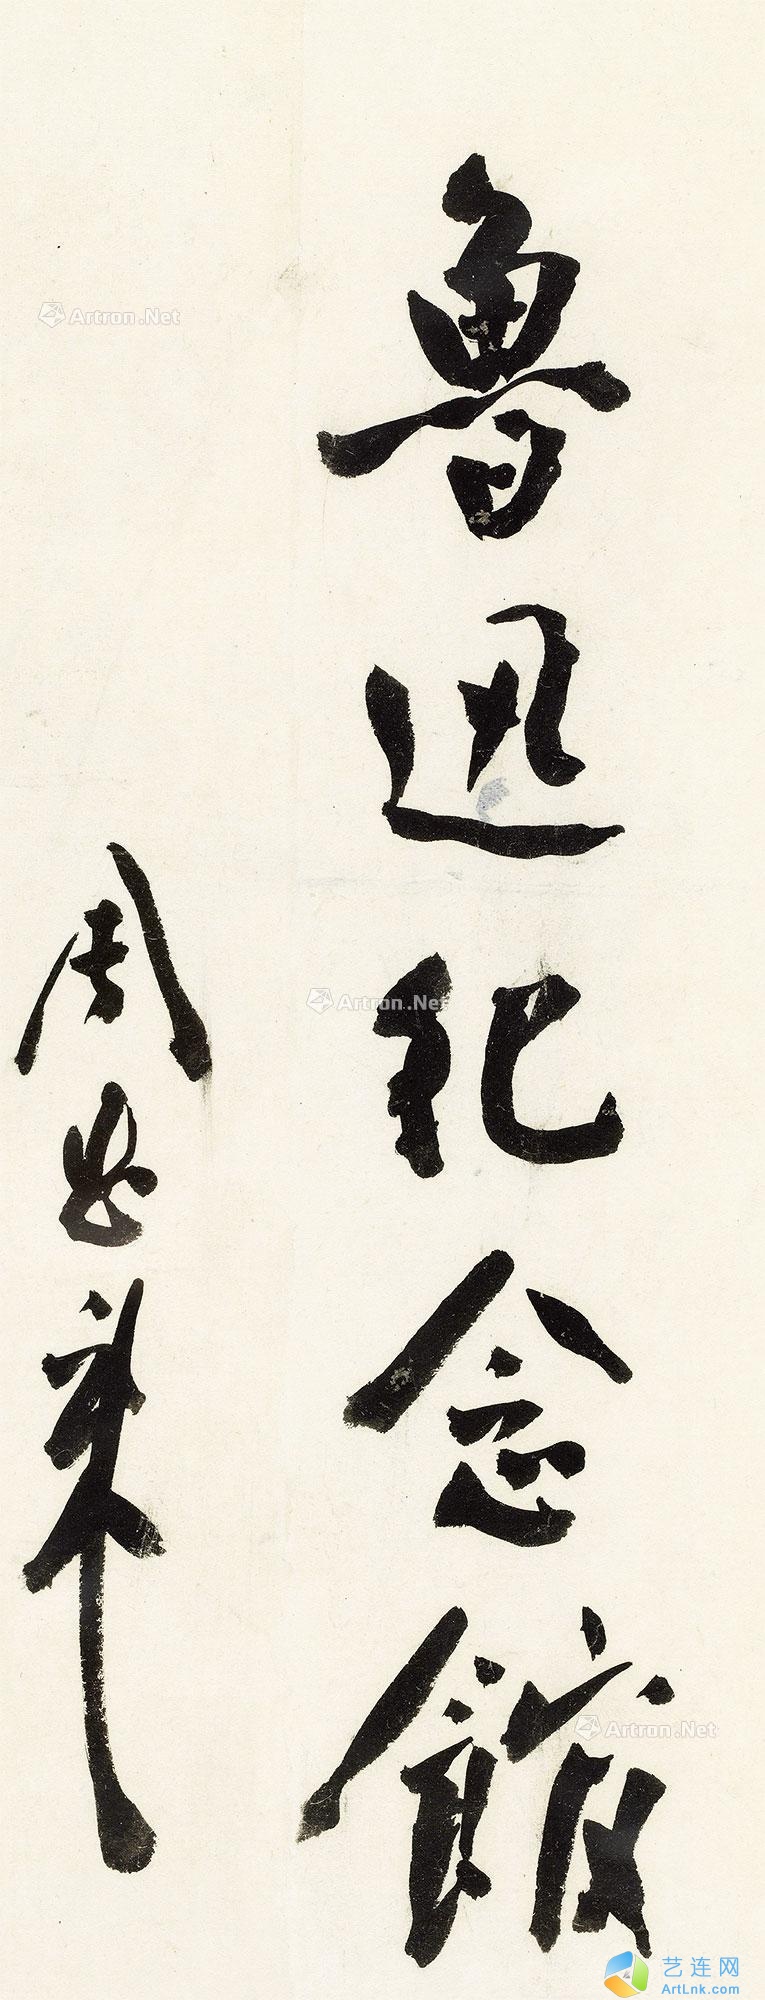 魯迅纪念館
周恩来
Artron.Net
Artron.Net
Artron.Net
艺连网
ArtLnk.com